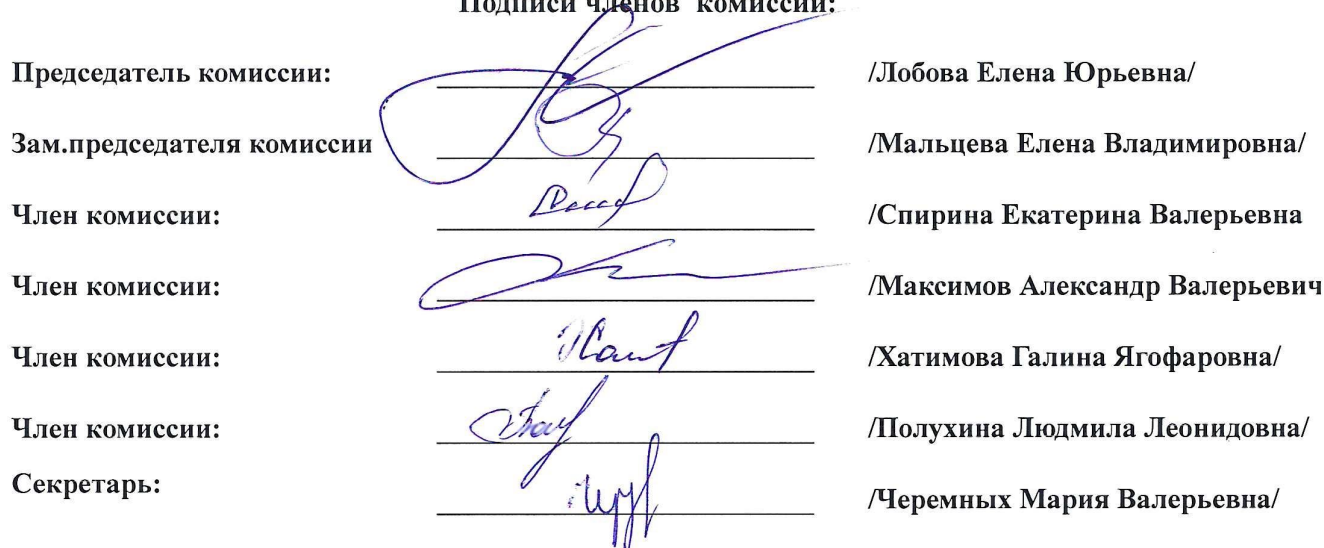 Подписи членов комиссии:
Председатель комиссии: /Лобова Елена Юрьевна/
Зам.председателя комиссии /Мальцева Елена Владимировна/
Член комиссии: /Спирина Екатерина Валерьевна
Член комиссии: /Максимов Александр Валерьевич
Член комиссии: /Хатимова Галина Ягофаровна/
Член комиссии: /Полухина Людмила Леонидовна/
Секретарь: /Черемных Мария Валерьевна/